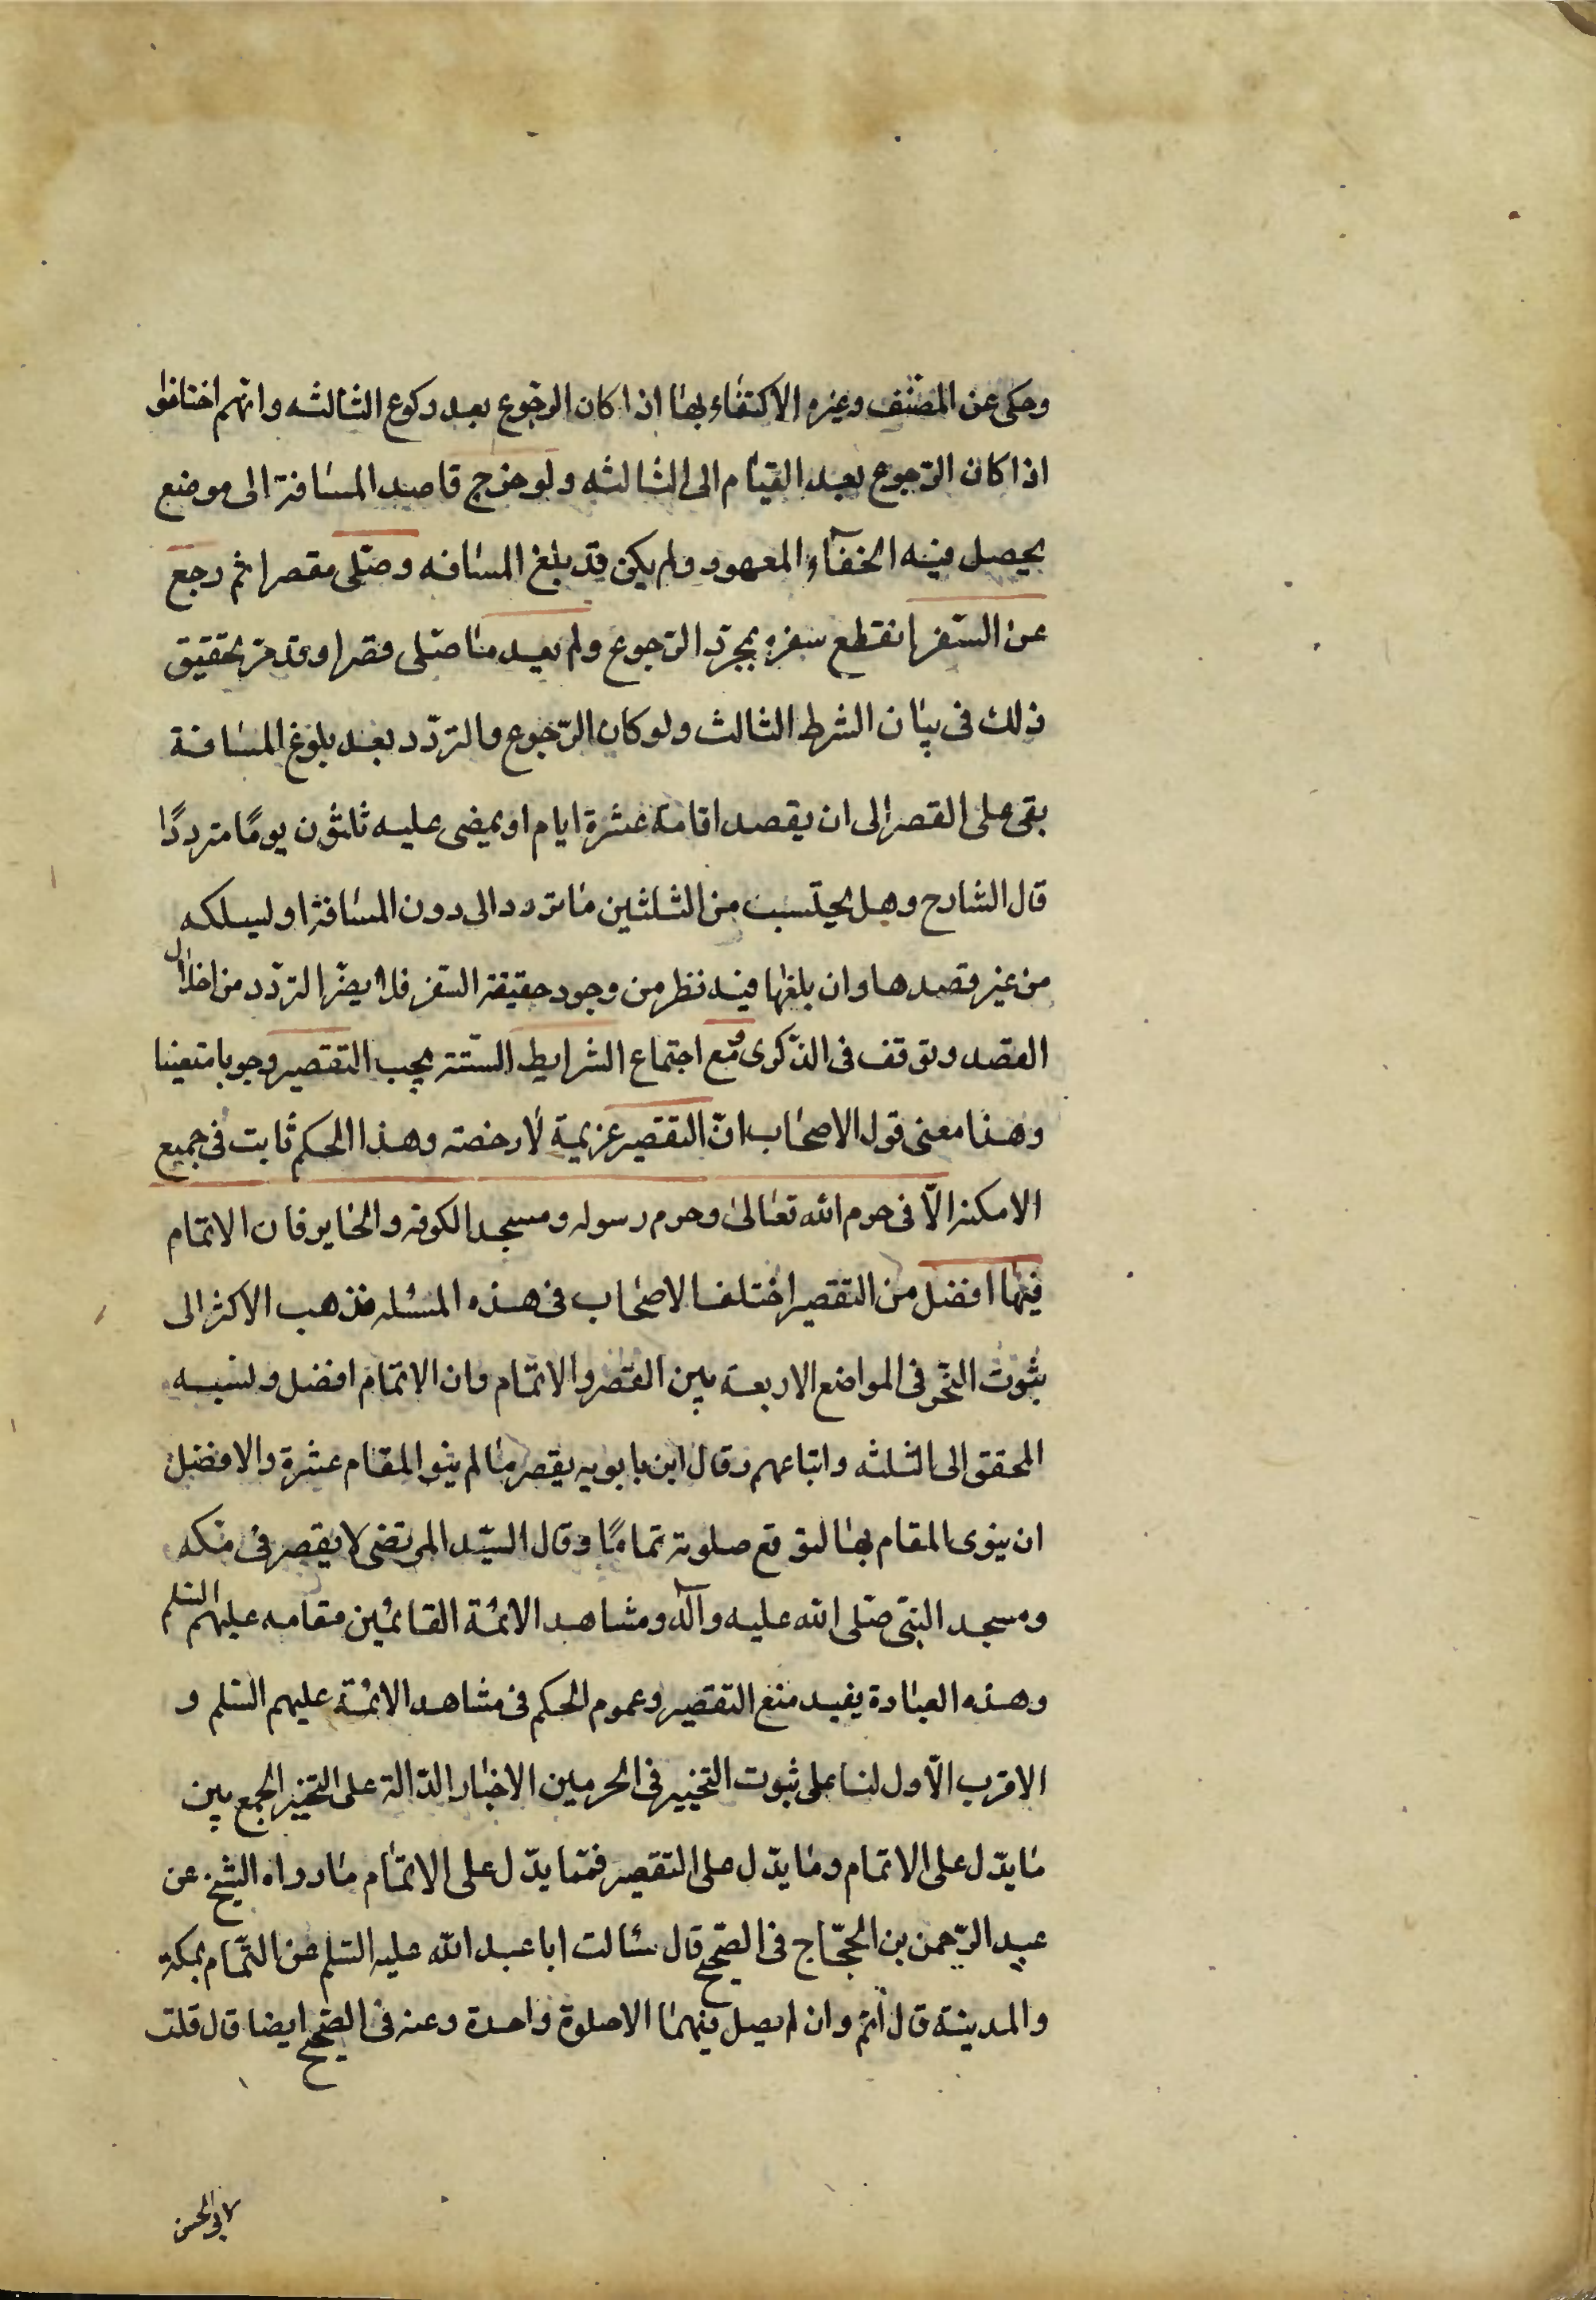 وحكى عن المصنّف وغيره الاكتفاء بهٰا اذا كان الرّجوع بعد ركوع الثالثه وانّهم اختلفوا
اذا كان الرّجوع بعد القيٰام الى الثالثه ولو خرج قاصد المسٰافة الى موضع
يحصل فيه الخفآء المعهود ولم يكن قد بلغ المسٰافه وصلّى مقصرا ثم رجع
عن السّفر انقطع سفره بمجرّد الرّجوع ولم يعيد مٰا صلّى قصرا وقد مرّ تحقيق
ذلك فى بيٰان الشرط الثالث ولو كان الرّجوع والتردّد بعد بلوغ المسٰافة
بقى على القصر الى ان يقصد اقامة عشرة ايام او يمضى عليه ثلثون يومًا مترددًا
قال الشارح وهل يحتسب من الثلثين مٰا تردد الى دون المسٰافة او ليسلكه
من غير قصدها وان بلغها فيه نظر من وجود حقيقة السّفر فلا يضرّ التردّد من اخلال
القصد وتوقف فى الذّكرى ومع اجتماع الشرايط السّتة يجب التقصير وجوبا متعينا
وهذا معنى قول الاصحٰاب انّ التقصير عزيمة لٰا رخصة وهذا الحكم ثابت فى جميع
الامكنة الّا فى حرم الله تعٰالىٰ وحرم رسوله ومسجد الكوفه والحٰاير فان الاتمام
فيهٰا افضل من التقصير اختلف الاصحٰاب فى هذه المسئله فذهب الاكثر الى
ثبوت التخّر فى المواضع الاربعة بين القصر والاتمٰام وان الاتمٰام افضل ونسبه
المحقق الى الثلثه واتباعهم وقال ابن بابويه يقصر مٰا لم ينو المقٰام عشرة والافضل
ان ينوى المقام بهٰا لتوقع صلوته تمامًا وقال السّيد المرتضى لا يقصر فى مٰكه
ومسجد النبّى صلّى الله عليه وآله ومشاهد الائمٔة القائمٔين مقامه عليهم السّلم
وهذه العبٰارة يفيد منع التقصير وعموم الحكم فى مشاهد الائمٔة عليهم السّلم و
الاقرب الّاول لنا على ثبوت التخيير فى الحرمين الاخبٰار الدّالة على التخيير الجمع بين
مٰا يدّل على الاتمام ومٰا يدّل على التقصير فممّا يدّل على الاتمٰام مٰا رواه الشيخ عن
عبد الرّحمن بن الحجّاج فى الصّحيح قال سٔالت ابا عبد الله عليه السّلم عن التّمام بمكة
والمدينة قال اتم وان لم يصل فيهمٰا الا صلوة واحدة وعنه فى الصّحيح ايضا قال قلت
لابى الحسن